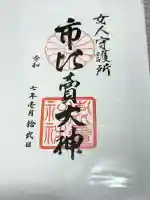 女人守護所
市比賣大神
令和
七年壱月拾弐日